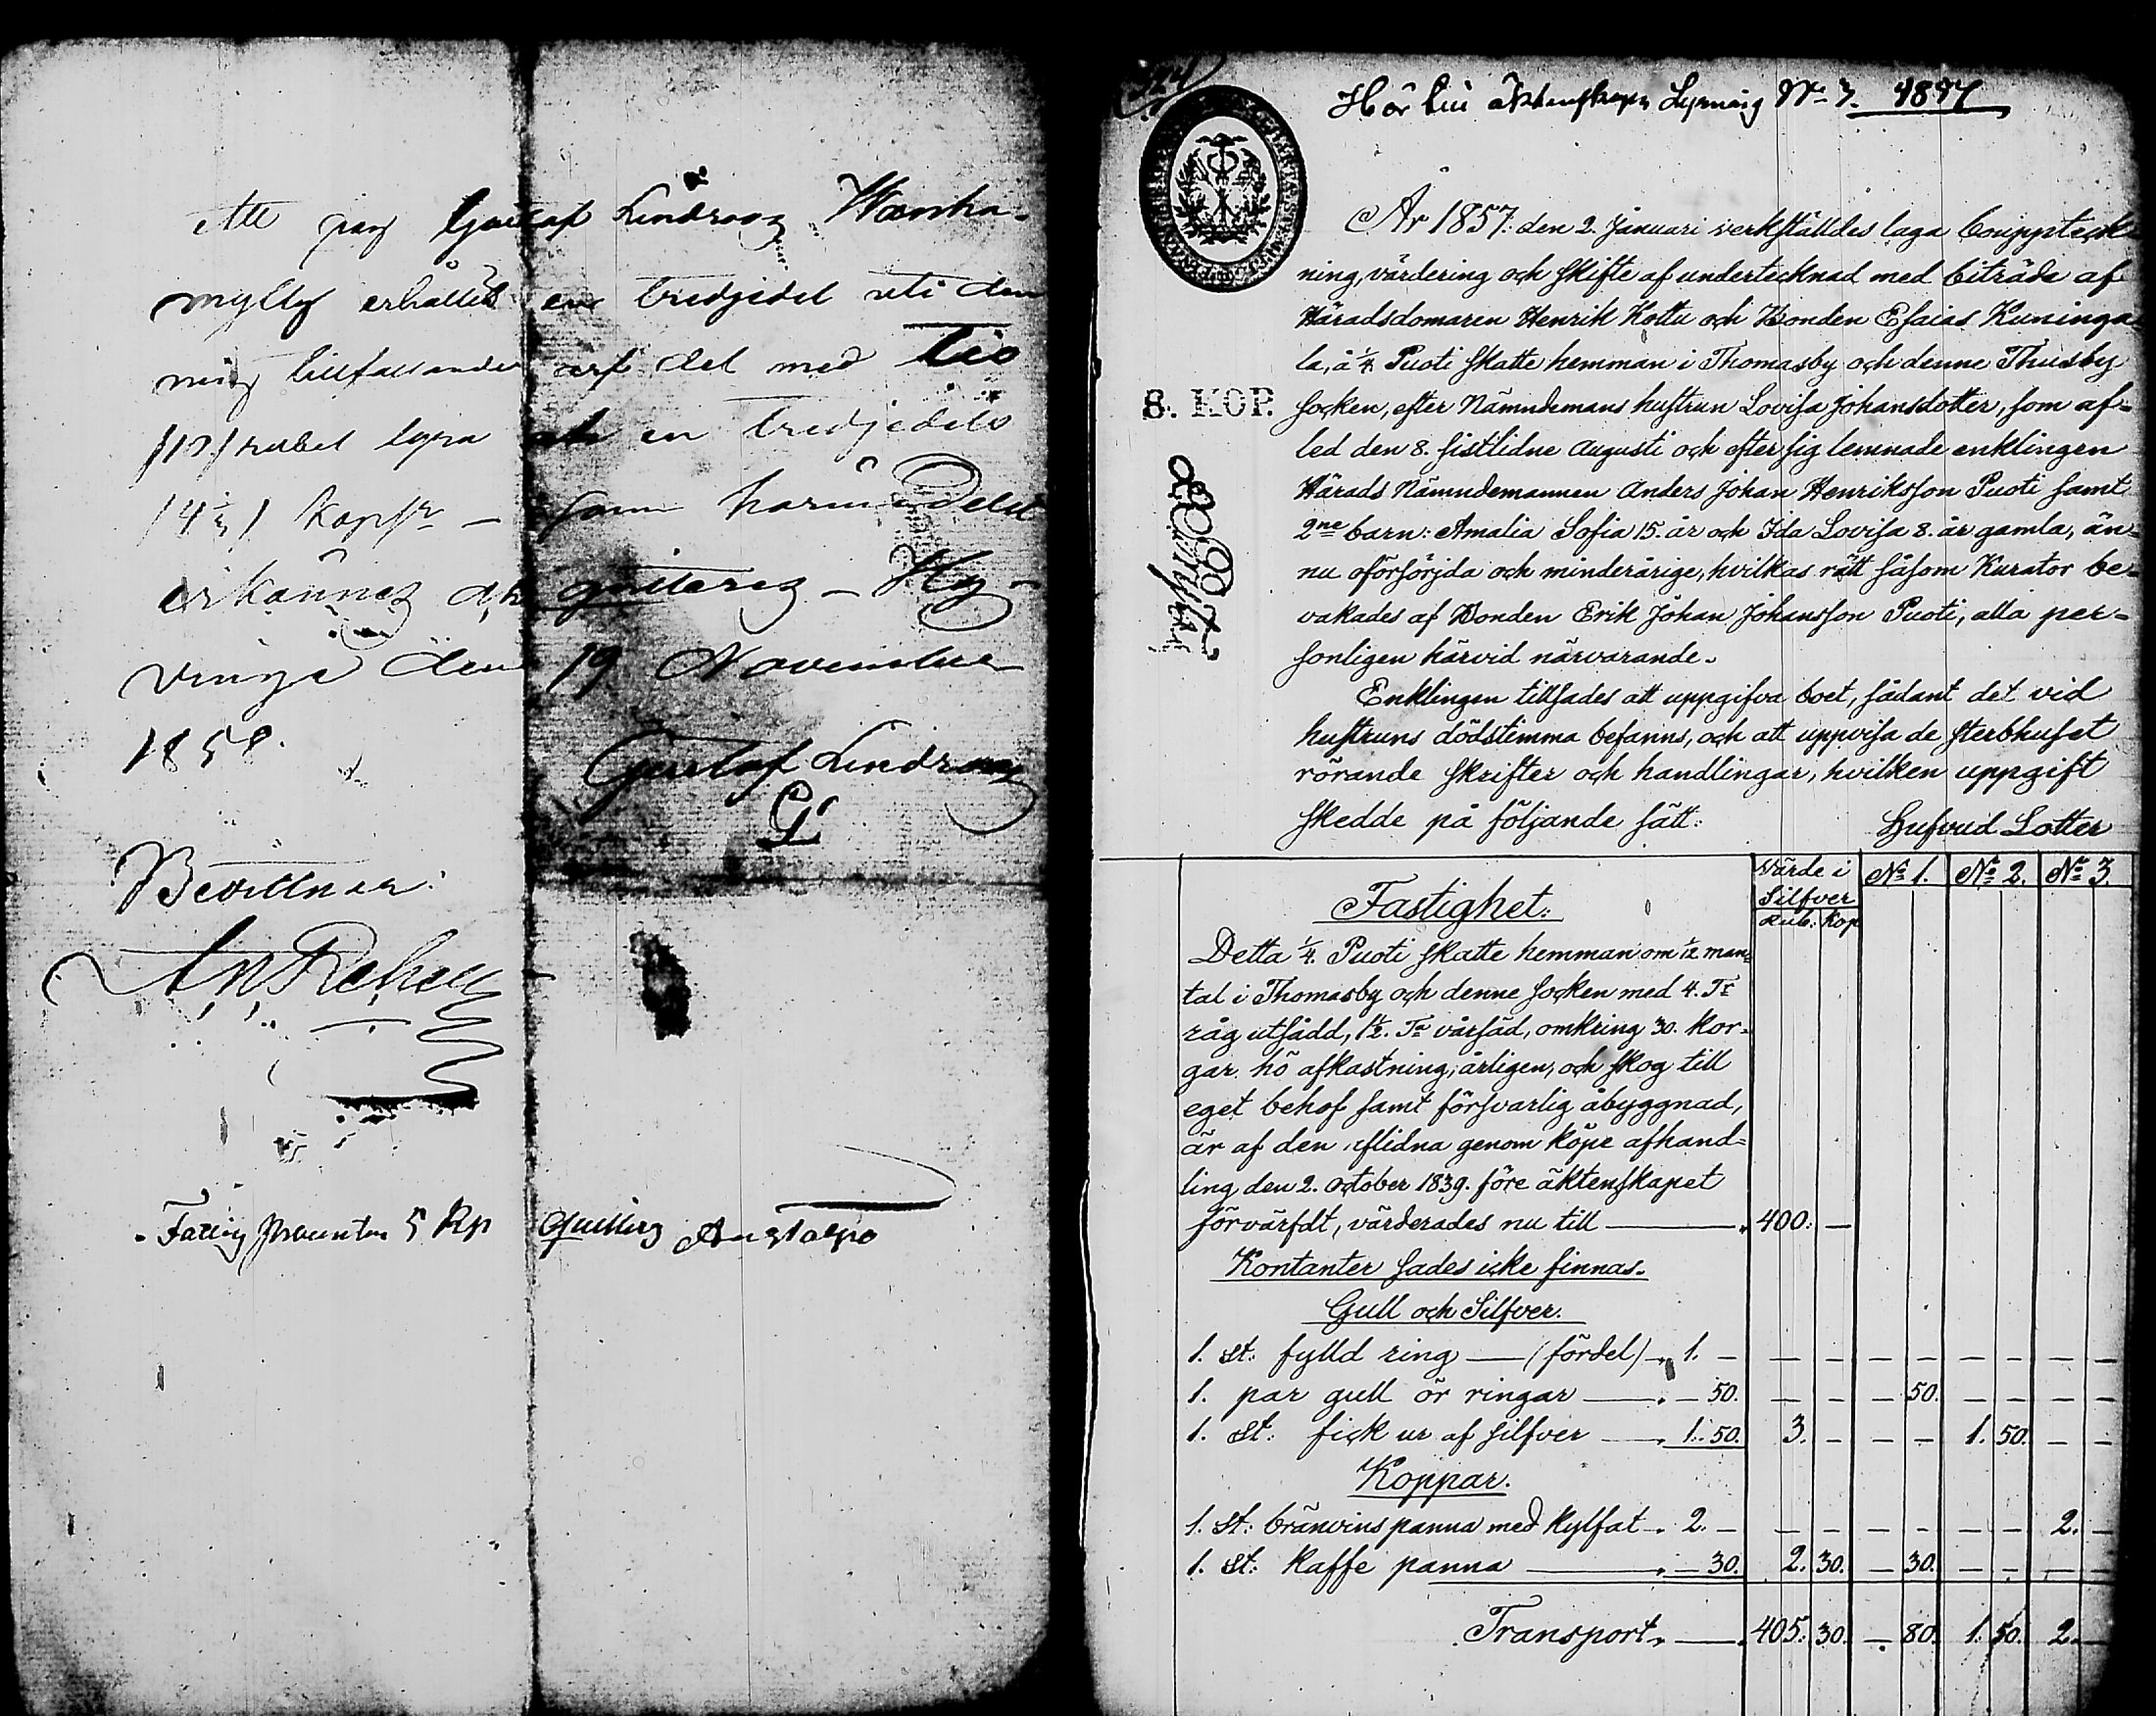 Att jag Gustaf Lindroos Wanha-
mylly erhållit en tredjedel uti den
mig tillfallande arf del med tio
/10/ rubel
/4 1/3/ Kop Sr – som härmedelst
erkännes och quitteras – Hy-
vinge den 19 November
1858.
Gustaf Lindroos
G L
Bevittnar:
5 Kp Quitteras
324
Hör till äktenskaps Lysning No 3. 1857
År 1857. den 2. Januari verkställdes laga bouppteck
ning, värdering och skifte af undertecknad med biträde af
Häradsdomaren Henrik Kottu och Bonden Esaias Kuninga
la, å 1/4 Puoti skatte hemman i Thomasby och denne Thusby
8. KOP.
socken, efter Nämndemans hustrun Lovisa Johansdotter, som af-
led den 8. sistlidne Augusti och efter sig lemnade enklingen
Härads Nämndemannen Anders Johan Henriksson Puoti samt
2ne barn: Amalia Sofia 15. år och Ida Lovisa 8. år gamla, än-
nu oförsörjda och minderårige, hvilkas rätt såsom Kurator be-
vakades af Bonden Erik Johan Johansson Puoti, alla per-
sonligen härvid närvarande.
Enklingen tillsades att uppgifva boet, sådant det vid
hustruns dödstimma befanns, och att uppvisa de sterbhuset
rörande skrifter och handlingar, hvilken uppgift
skedde på följande sätt:
Hufvud Lotter
Värde i Silfver No 1. No 2. No 3.
Rub: Kop
Fastighet:
Detta 1/4. Puoti skatte hemman om 1/12 man
tal i Thomasby och denne socken med 4. Tr
råg utsädd, 1 1/2. Ta vårsäd, omkring 30. kor-
gar hö afkastning, årligen, och skog till
eget behof samt försvarlig åbyggnad,
är af den aflidna genom köpe afhand-
ling den 2. october 1839. före äktenskapet
förvärfdt, värderades nu till — 400. —
Kontanter sades icke finnas.
Gull och Silfver.
1. st: fylld ring — (fördel) „ 1. – – – – – – – – –
1. par gull ör ringar — „ – 50. – – – 50. – – – –
1. st: fick ur af silfver — „ 1. 50. 3. – – – 1. 50. – –
Koppar.
1. st: bränvins panna med kylfat „ 2. – – – – – – – 2. –
1. st: kaffe panna — „ – 30. 2. 30. – 30. – – – –
Transport „ — 405. 30. – 80. 1. 50. 2. –